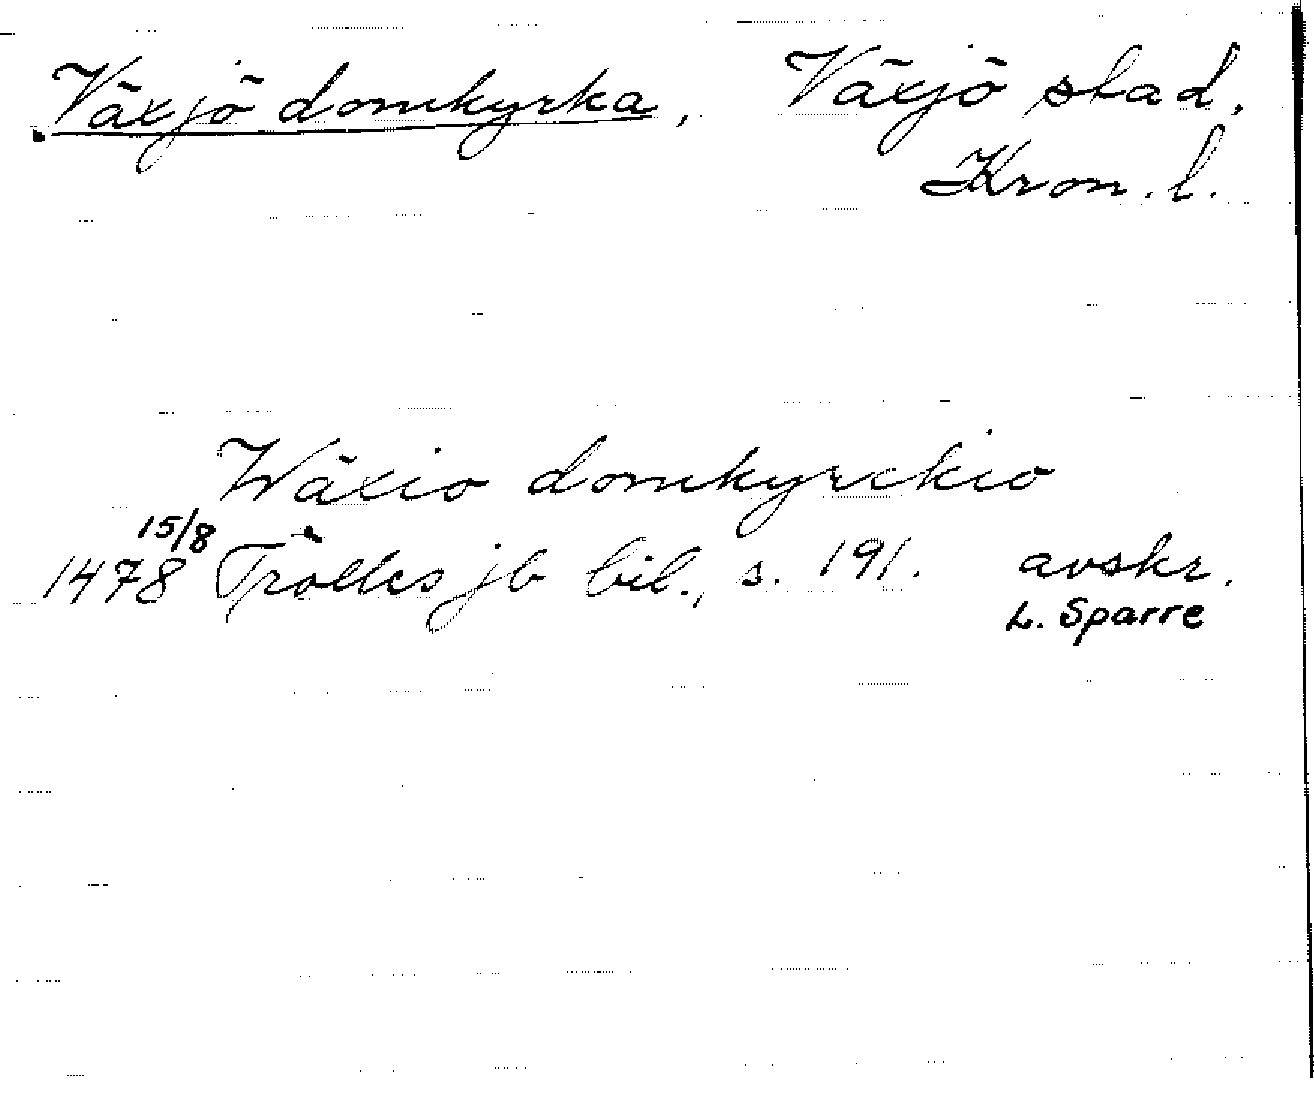 Växjö domkyrka, Växjö stad,
Kron. l.
Wäxio domkyrckio
15/8
1478 Trolles jb bil., s. 191. avskr.
L. Sparre